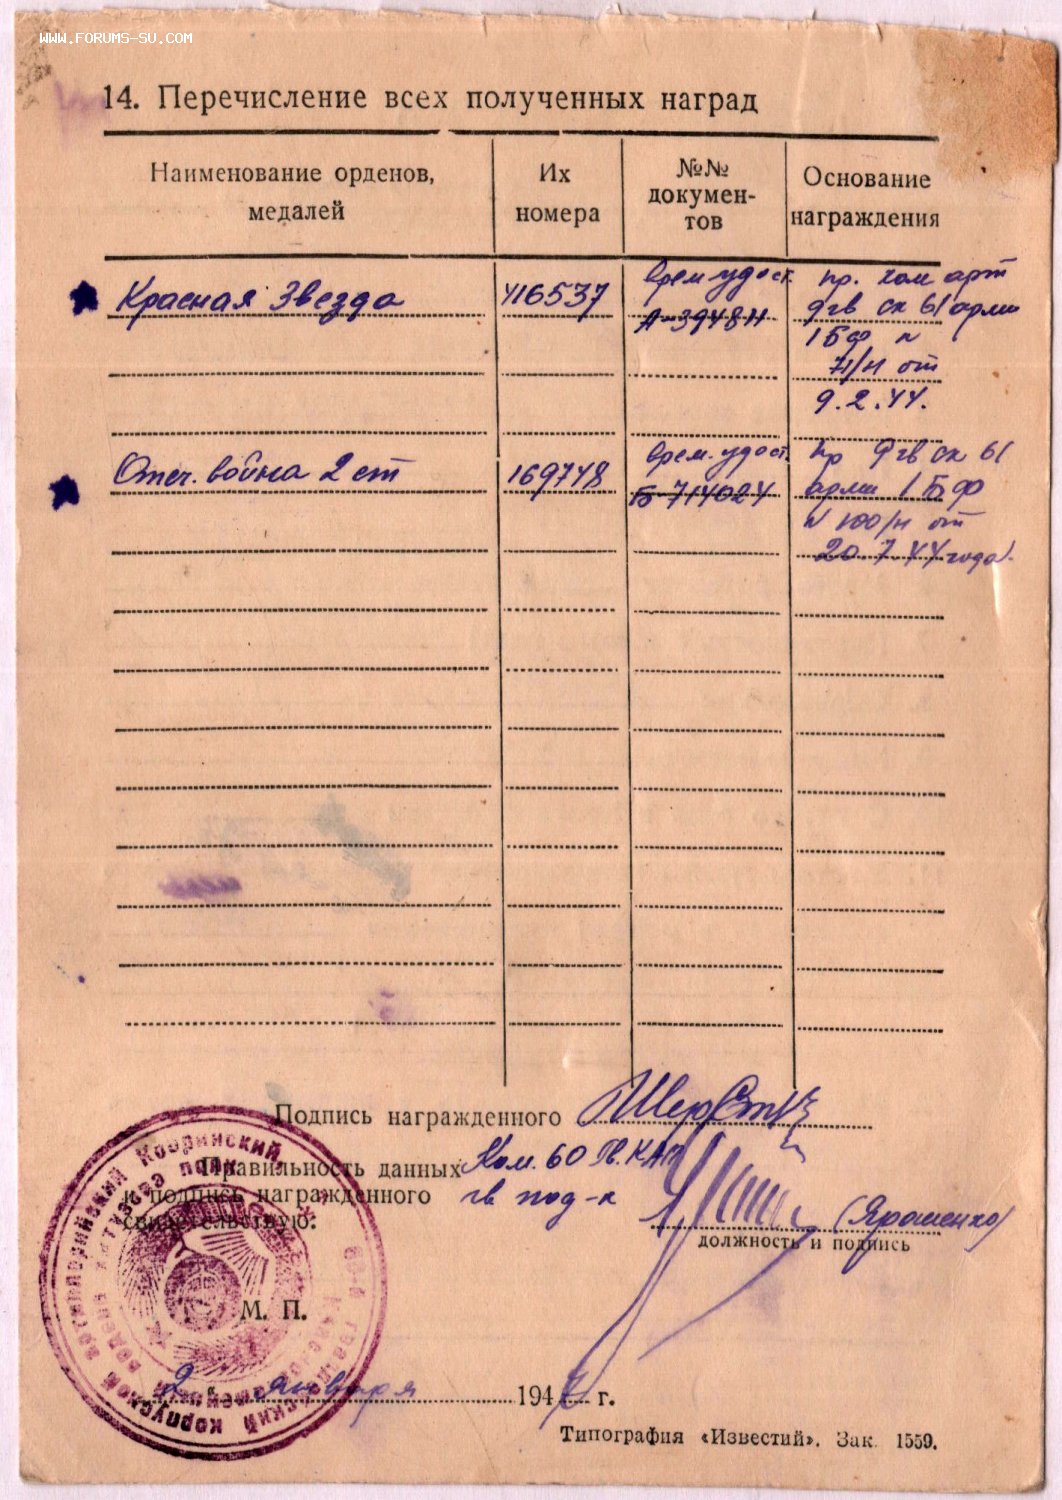 WWW.FORUMS-SU.COM
14. Перечисление всех полученных наград
Наименование орденов, медалей
Их номера
№№ докумен- тов
Основание награждения
Красная Звезда
416537
Врем. удост.
А-394811
пр. ком арт
9гв ск 61 арми
1 БФ
от
9.2.44.
Отеч. война 2 ст
169748
Врем. удост.
Б-714024
пр 9гв ск 61
арми 1 БФ
N 100/н от
20 7 44 года.
Подпись награжденного
Правильность данных Ком. 60 Гв. КАП
и подпись награжденного гв под-к
свидетельствую: (Ярошенко)
должность и подпись
60-й гвардейский Краснознаменный корпусной артиллерийский Кобринский
полк
М. П.
2 января 1947 г.
Типография «Известий». Зак. 1559.